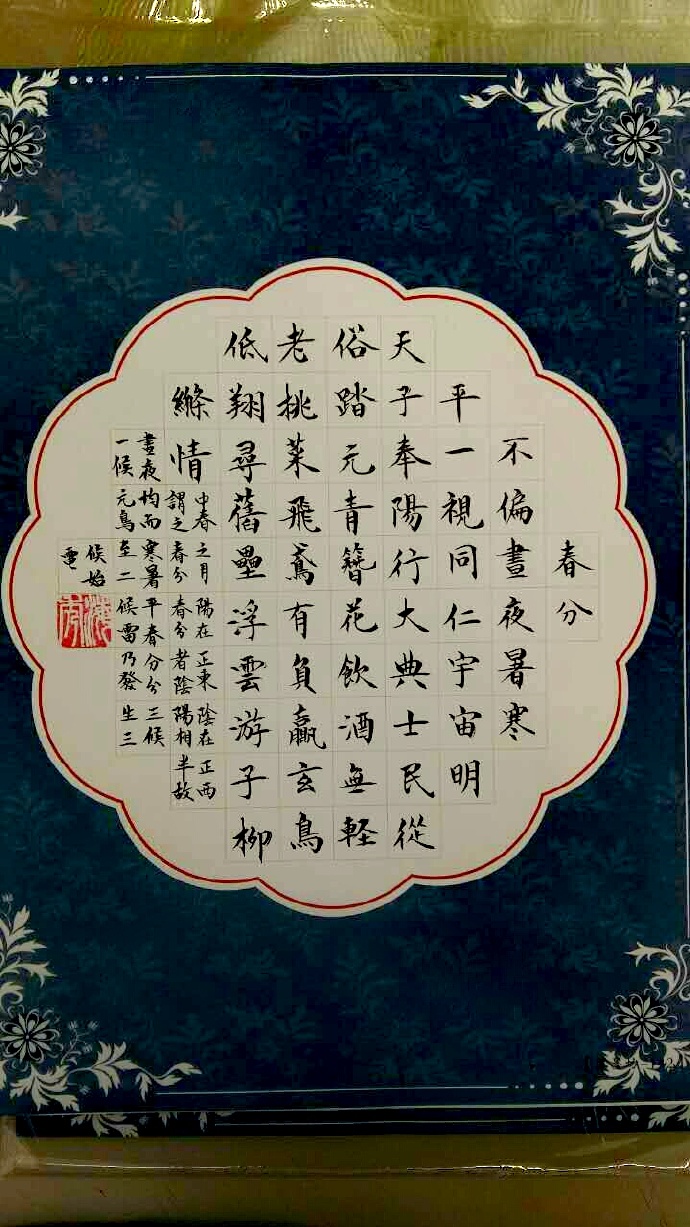 春分
不偏晝夜暑寒
平一視同仁宇宙明
天子奉陽行大典士民從
俗踏元青簪花飲酒無軽
老挑菜飛鳶有負贏玄鳥
低翔尋舊壘浮雲游子柳
縧情
中春之月陽在正東陰在正西
謂之春分春分者陰陽相半故
晝夜均而寒暑平春分分三候
一候元鳥至二候雷乃發生三
候始
電